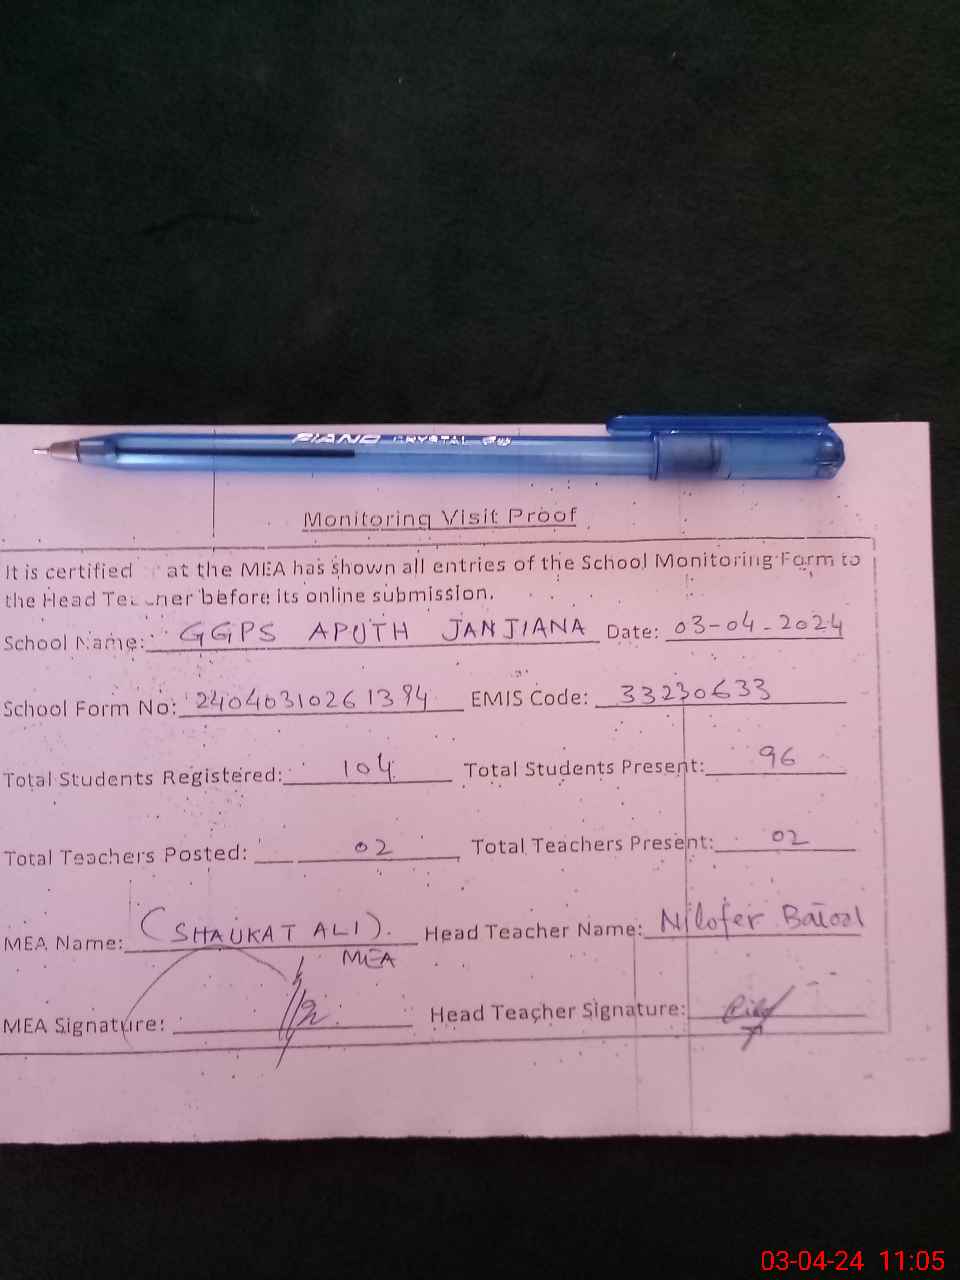 PIANO CRYSTAL
Monitoring Visit Proof
It is certified at the MEA has shown all entries of the School Monitoring Form to
the Head Teacher before its online submission.
School Name: GGPS APUTH JANJIANA Date: 03-04-2024
School Form No: 24040310261394 EMIS Code: 33230633
Total Students Registered: 104 Total Students Present: 96
Total Teachers Posted: 02 Total Teachers Present: 02
MEA Name: (SHAUKAT ALI). Head Teacher Name: Nilofer Batool
MEA
MEA Signature: Head Teacher Signature:
03-04-24 11:05